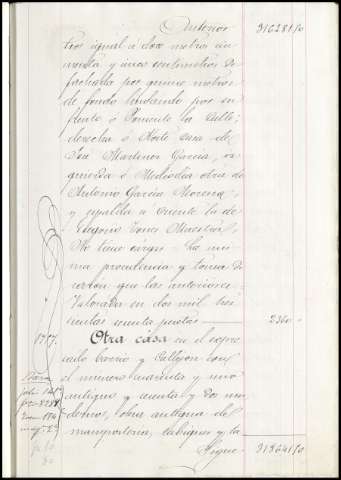 Anterior 316281 50
tros igual á doce metros cin
cuenta y cinco centímetros de
fachada por quince metros
de fondo lindando por su
frente ó Poniente la calle;
derecha ó Norte casa de
José Martinez García, iz
quierda ó Mediodia otra de
Antonio García Moreno,
y espalda ó Oriente la de
Eugenio Torres Maestre.
No tiene cargas. La mis
ma procedencia y forma de
que las anteriores.
Valorada en dos mil tres
cientas sesenta pesetas 2360 "
Otra casa en el expre
sado barrio y Callejon con
el número cuarenta y uno
antiguo y cuarenta y dos mo
derno, obra antigua de
mampostería, tabiques y la
Sigue 318641 50